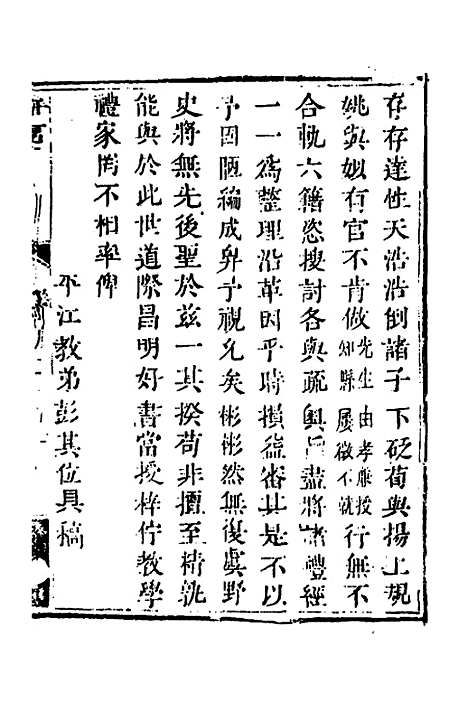 存存達性天浩浩倒諸子下砭荀與揚上規
姚與姒有官不肯做先生由孝廉授知縣屢徵不就行無不
合軌六籍恣搜討各與疏輿旨盡將諸禮經
一一為整理沿革因乎時損益審其是不以
予固陋編成畀予視允矣彬彬然無復冀野
史將無先後聖於茲一其揆苟非擅至精孰
能與於此世道際昌明好書當授梓佇教學
禮家罔不相率俾
平江教弟彭其位具稿